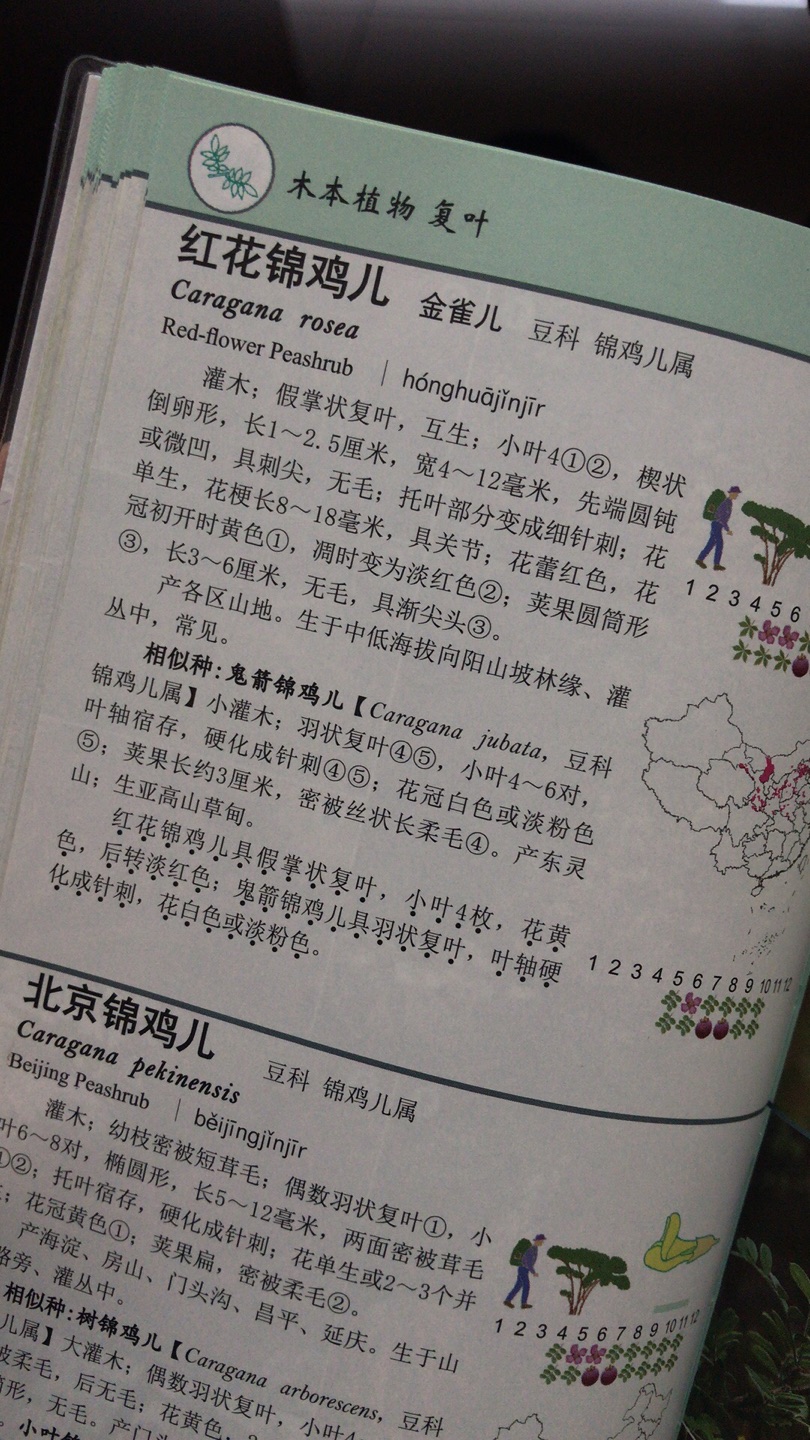 木本植物 复叶
红花锦鸡儿 金雀儿 豆科 锦鸡儿属
Caragana rosea
Red-flower Peashrub | hónghuājǐnjīr
灌木；假掌状复叶，互生；小叶4①②，楔状
倒卵形，长1～2.5厘米，宽4～12毫米，先端圆钝
或微凹，具刺尖，无毛；托叶部分变成细针刺；花
单生，花梗长8～18毫米，具关节；花蕾红色，花
冠初开时黄色①，凋时变为淡红色②；荚果圆筒形
③，长3～6厘米，无毛，具渐尖头③。
产各区山地。生于中低海拔向阳山坡林缘、灌
丛中，常见。
相似种：鬼箭锦鸡儿【Caragana jubata，豆科
锦鸡儿属】小灌木；羽状复叶④⑤，小叶4～6对，
叶轴宿存，硬化成针刺④⑤；花冠白色或淡粉色
⑤；荚果长约3厘米，密被丝状长柔毛④。产东灵
山；生亚高山草甸。
红花锦鸡儿具假掌状复叶，小叶4枚，花黄
色，后转淡红色；鬼箭锦鸡儿具羽状复叶，叶轴硬
化成针刺，花白色或淡粉色。
1 2 3 4 5 6
1 2 3 4 5 6 7 8 9 10 11 12
北京锦鸡儿 豆科 锦鸡儿属
Caragana pekinensis
Beijing Peashrub | běijīngjǐnjīr
灌木；幼枝密被短茸毛；偶数羽状复叶①，小
叶6～8对，椭圆形，长5～12毫米，两面密被茸毛
①②；托叶宿存，硬化成针刺；花单生或2～3个并
；花冠黄色①；荚果扁，密被柔毛②。
产海淀、房山、门头沟、昌平、延庆。生于山
路旁、灌丛中。
1 2 3 4 5 6 7 8 9 10 11 12
相似种：树锦鸡儿【Caragana arborescens，豆科
儿属】大灌木；偶数羽状复叶，小叶4
被柔毛，后无毛；花黄色，
筒形，无毛。产门头
。小叶